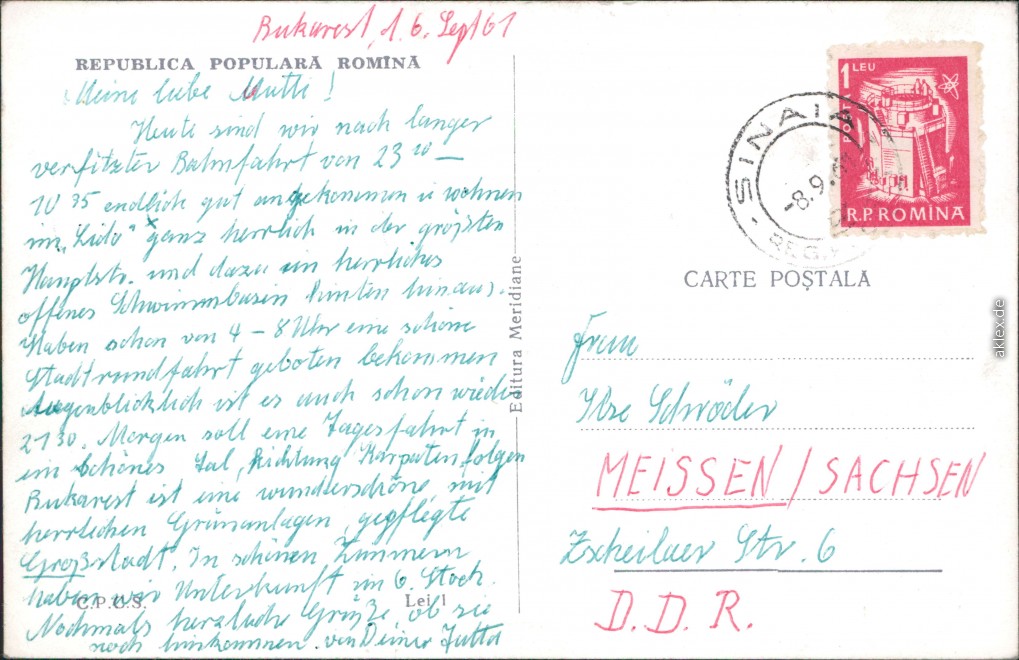 Bukarest, d. 6. Sept 61
REPUBLICA POPULARĂ ROMÎNĂ
Meine liebe Mutti!
Heute sind wir nach langer
verfitzter Bahnfahrt von 23 10 –
10 35 endlich gut angekommen u wohnen
im "Lido" ganz herrlich in der größten
Hauptstr. und dazu ein herrliches
offenes Schwimmbasin hinten hinaus.
Haben schon von 4 – 8 Uhr eine schöne
Stadtrundfahrt geboten bekommen
Augenblicklich ist es auch schon wieder
21 30. Morgen soll eine Tagesfahrt in
ein schönes Tal, Richtung Karpaten folgen
Bukarest ist eine wunderschöne, mit
herrlichen Grünanlagen, gepflegte
Großstadt. In schönen Zimmern
haben wir Unterkunft im 6. Stock.
C.P.C.S. Lei 1
Nochmals herzliche Grüße, ob sie
noch hinkommen. von Deiner Jutta
Editura Meridiane
1 LEU
POSTA
R.P. ROMÎNA
SINAIA
-8.9.61
REG.
CARTE POȘTALĂ
Frau
Ilse Schröder
MEISSEN / SACHSEN
Zscheilaer Str. 6
D. D. R.
aklex.de